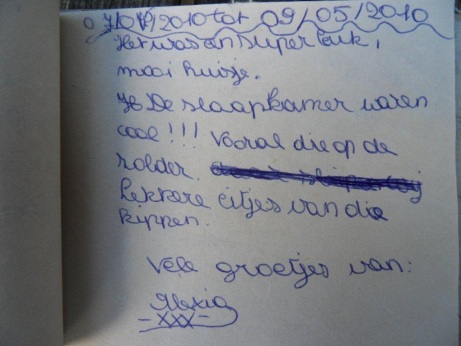 07/05/2010 tot 09/05/2010
Het was een super leuk,
mooi huisje.
De slaapkamer waren
cool!!! Vooral die op de
zolder.
Lekkere eitjes van die
kippen.
Vele groetjes van:
Alexia
-xxx-